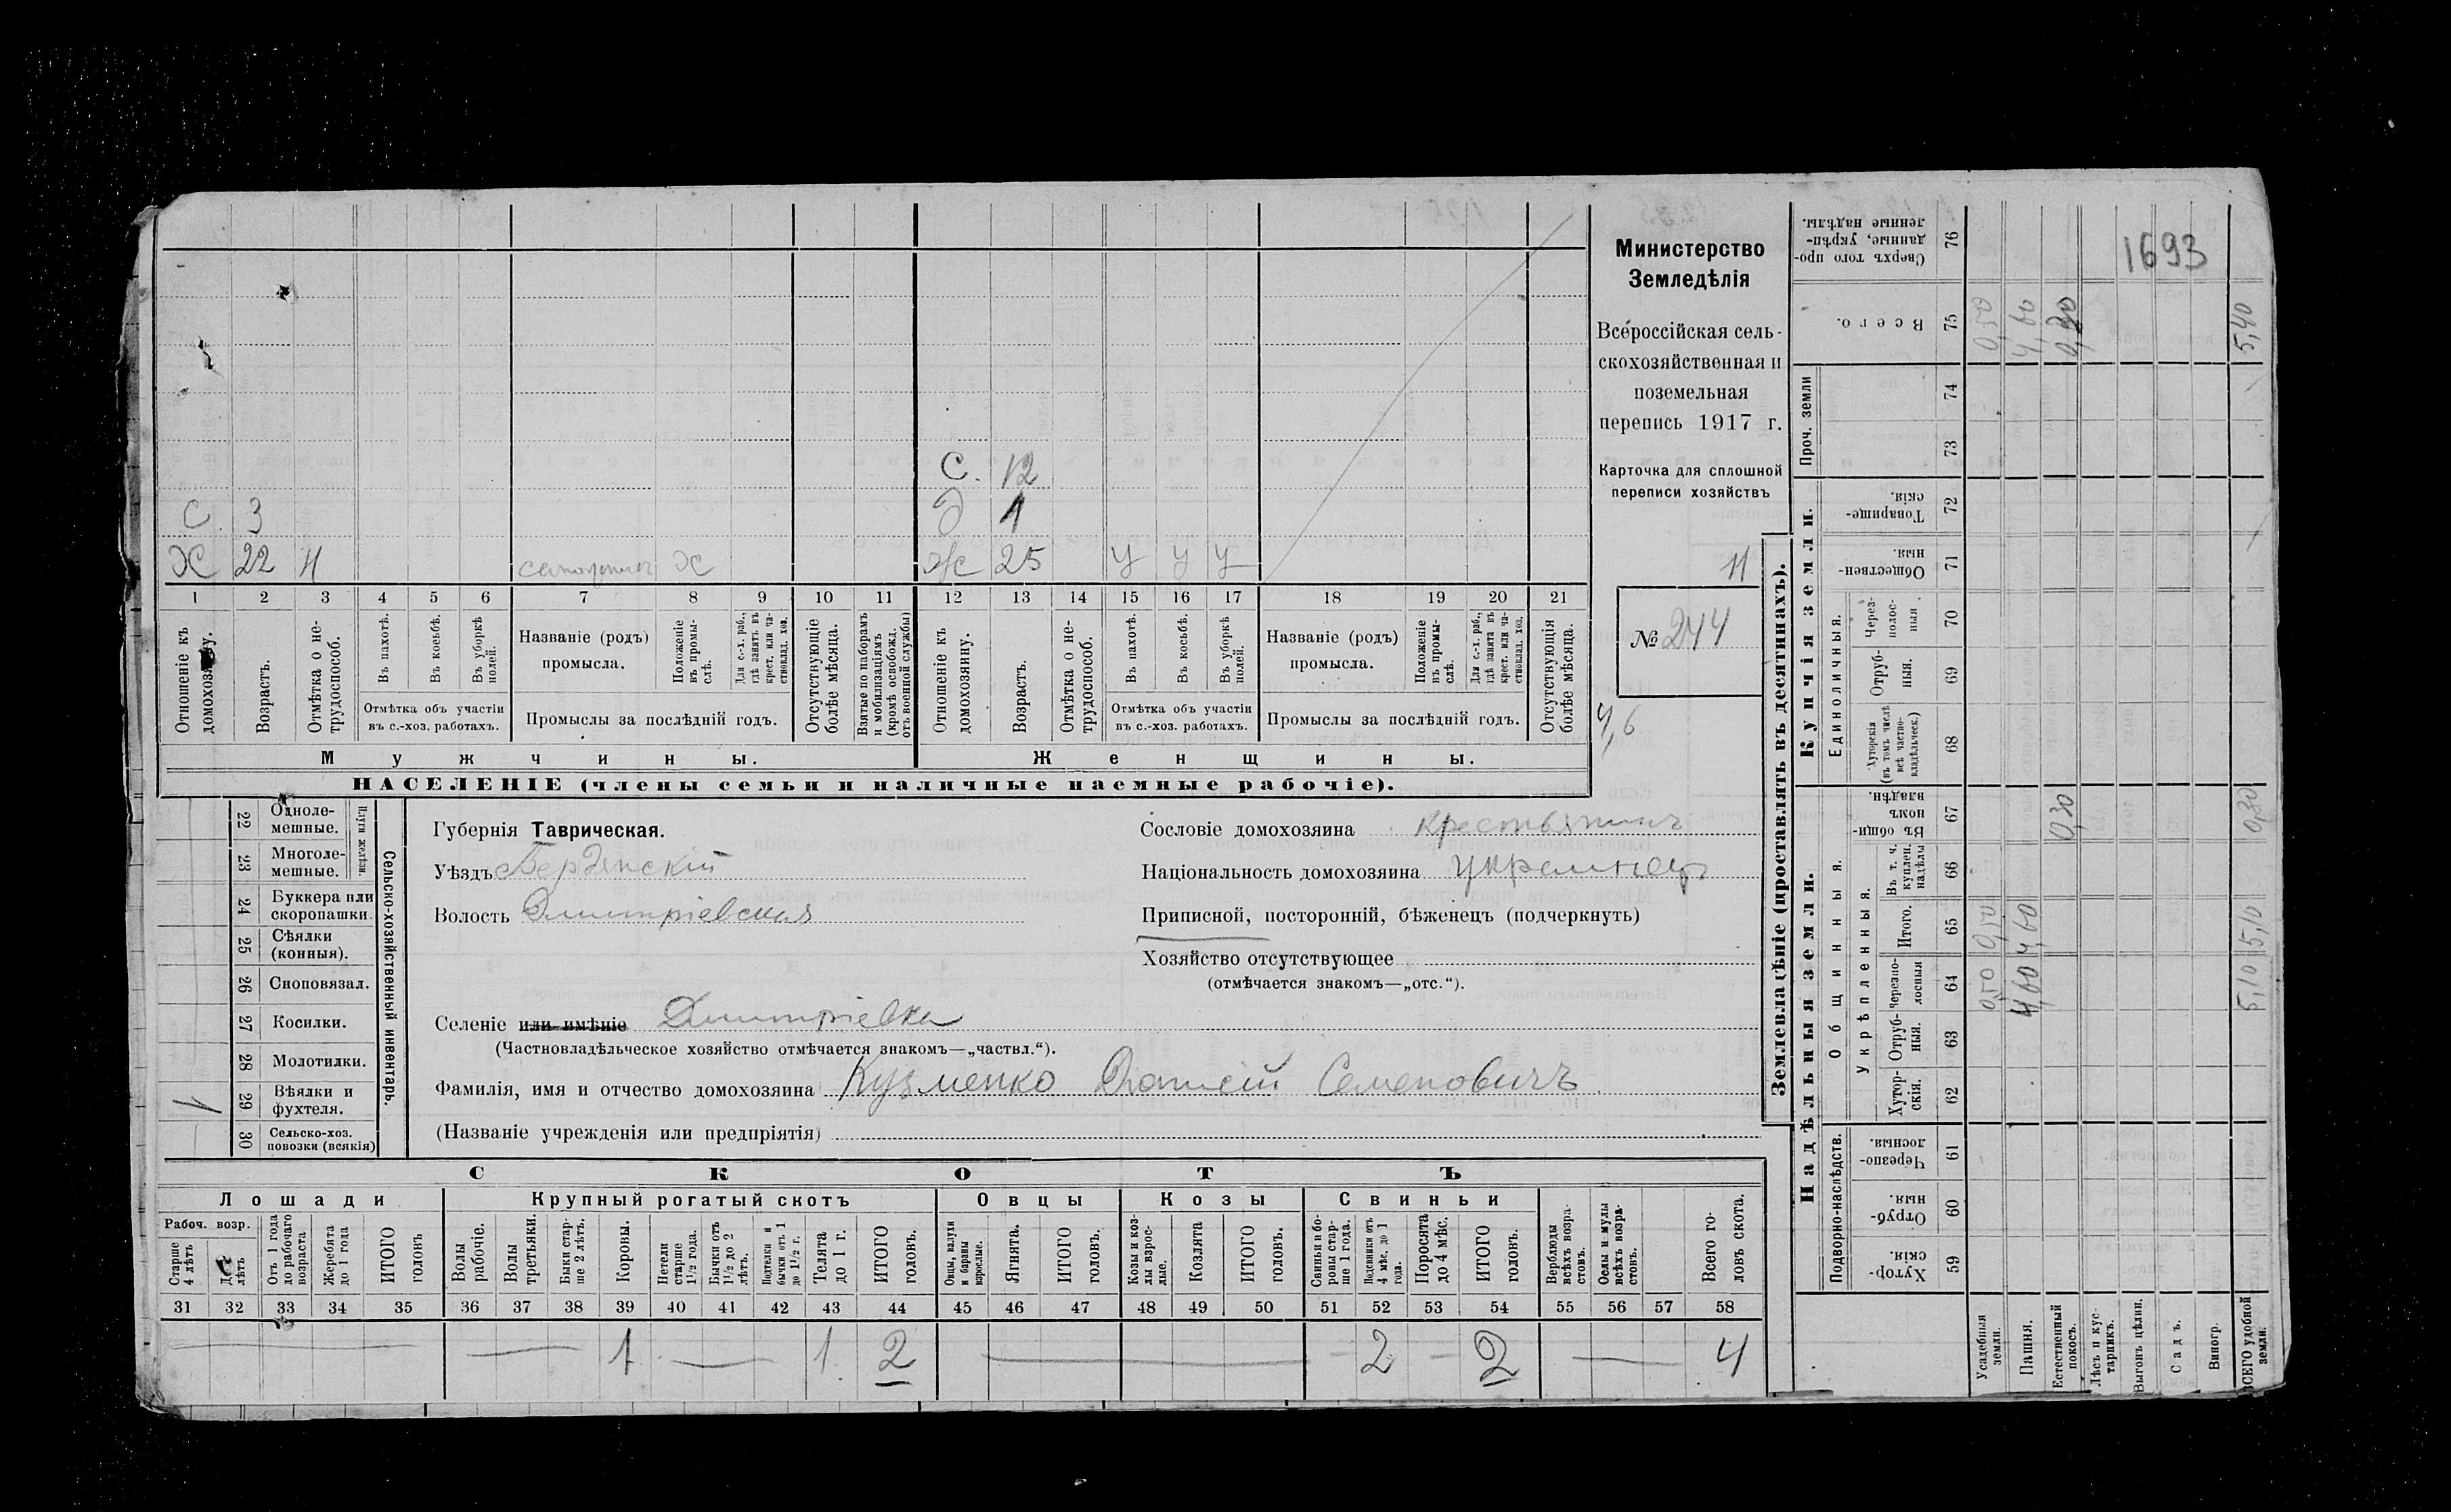 Министерство
Земледѣлія
Всероссійская сель-
скохозяйственная и
поземельная
перепись 1917 г.
Карточка для сплошной
переписи хозяйствъ
11
№ 244
4,6
1693
С. 12
С. 3
Д 1
Х 22 Н Х
Ж 25 У У У
1 2 3 4 5 6 7 8 9 10 11 12 13 14 15 16 17 18 19 20 21
Отношеніе къ домохозяину.
Возрастъ.
Отмѣтка о не-трудоспособ.
Въ пахотѣ.
Въ косьбѣ.
Въ уборкѣ полей.
Отмѣтка объ участіи
въ с.-хоз. работахъ.
Названіе (родъ)
промысла.
Положеніе въ промы-слѣ.
Для с.-х. раб., гдѣ занятъ въ крест. или ча-стновлад. хоз.
Промыслы за послѣдній годъ.
Отсутствующіе болѣе мѣсяца.
Взятые по наборамъ и мобилизаціямъ (кромѣ освобожд. отъ военной службы)
Отношеніе къ домохозяину.
Возрастъ.
Отмѣтка о не-трудоспособ.
Въ пахотѣ.
Въ косьбѣ.
Въ уборкѣ полей.
Отмѣтка объ участіи
въ с.-хоз. работахъ.
Названіе (родъ)
промысла.
Положеніе въ промы-слѣ.
Для с.-х. раб., гдѣ занята въ крест. или ча-стновлад. хоз.
Промыслы за послѣдній годъ.
Отсутствующія болѣе мѣсяца.
Мужчины.
Женщины.
НАСЕЛЕНІЕ (члены семьи и наличные наемные рабочіе).
22 Одноле-мешные.
23 Многоле-мешные.
Плуги желѣзн.
24 Буккера или скоропашки.
25 Сѣялки (конныя).
26 Сноповязал.
27 Косилки.
28 Молотилки.
29 Вѣялки и фухтеля. 1
30 Сельско-хоз. повозки (всякія)
Сельско-хозяйственный инвентарь.
Губернія Таврическая.
Уѣздъ Бердянскій
Волость Дмитріевская
Сословіе домохозяина крестьянинъ
Національность домохозяина украинец
Приписной, посторонній, бѣженецъ (подчеркнуть)
Хозяйство отсутствующее
(отмѣчается знакомъ—„отс.“).
Селеніе или имѣніе Дмитріевка
(Частновладѣльческое хозяйство отмѣчается знакомъ—„частвл.“).
Фамилія, имя и отчество домохозяина Кузменко Семеновичъ
(Названіе учрежденія или предпріятія)
СКОТЪ
Лошади
Крупный рогатый скотъ
Овцы
Козы
Свиньи
Рабоч. возр.
Старше 4 лѣтъ
лѣтъ
Отъ 1 года до рабочаго возраста
Жеребята до 1 года
ИТОГО головъ
Волы рабочіе.
Волы третьяки.
Быки стар-ше 2 лѣтъ.
Коровы.
Нетели старше 1½ года.
Бычки отъ 1½ до 2 лѣтъ.
Подтелки и бычки отъ 1 до 1½ г.
Телята до 1 г.
ИТОГО головъ.
Овцы, валухи и бараны взрослые.
Ягнята.
ИТОГО головъ.
Козы и коз-лы взрос-лые.
Козлята
ИТОГО головъ.
Свиньи и бо-ровы стар-ше 1 года.
Подсвинки отъ 4 мѣс. до 1 года.
Поросята до 4 мѣс.
ИТОГО головъ.
Верблюды всѣхъ возра-стовъ.
Ослы и мулы всѣхъ возра-стовъ.
Всего го-ловъ скота.
31 32 33 34 35 36 37 38 39 40 41 42 43 44 45 46 47 48 49 50 51 52 53 54 55 56 57 58
1 1 2 2 2 4
Землевладѣніе (проставлять въ десятинахъ).
Надѣльныя земли.
Купчія земли.
Проч. земли
Подворно-наслѣдств.
Общинныя.
Укрѣпленныя.
Единоличныя.
59 Хутор-скія.
60 Отруб-ныя.
61 Черезпо-лосныя.
62 Хутор-скія.
63 Отруб-ныя.
64 Черезпо-лосныя
65 Итого.
66 Въ т. ч. куплен. надѣлы
67 Въ общин-номъ владѣн.
68 Хуторскія (въ томъ числѣ всѣ частно-владѣльческ.)
69 Отруб-ныя.
70 Через-полос-ныя.
71 Обществен-ныя.
72 Товарище-скія.
73
74
75 Всего.
76 Сверхъ того про-данные, укрѣп-ленные надѣлы.
Усадебныя земли. 0,50 0,50 0,50
Пашня. 4,60 4,60 4,60
Естественный покосъ. 0,30 0,30
Лѣсъ и кус-тарникъ.
Выгонъ цѣлин.
Садъ.
Виногр.
ВСЕГО удобной земли. 5,10 5,10 0,30 5,40